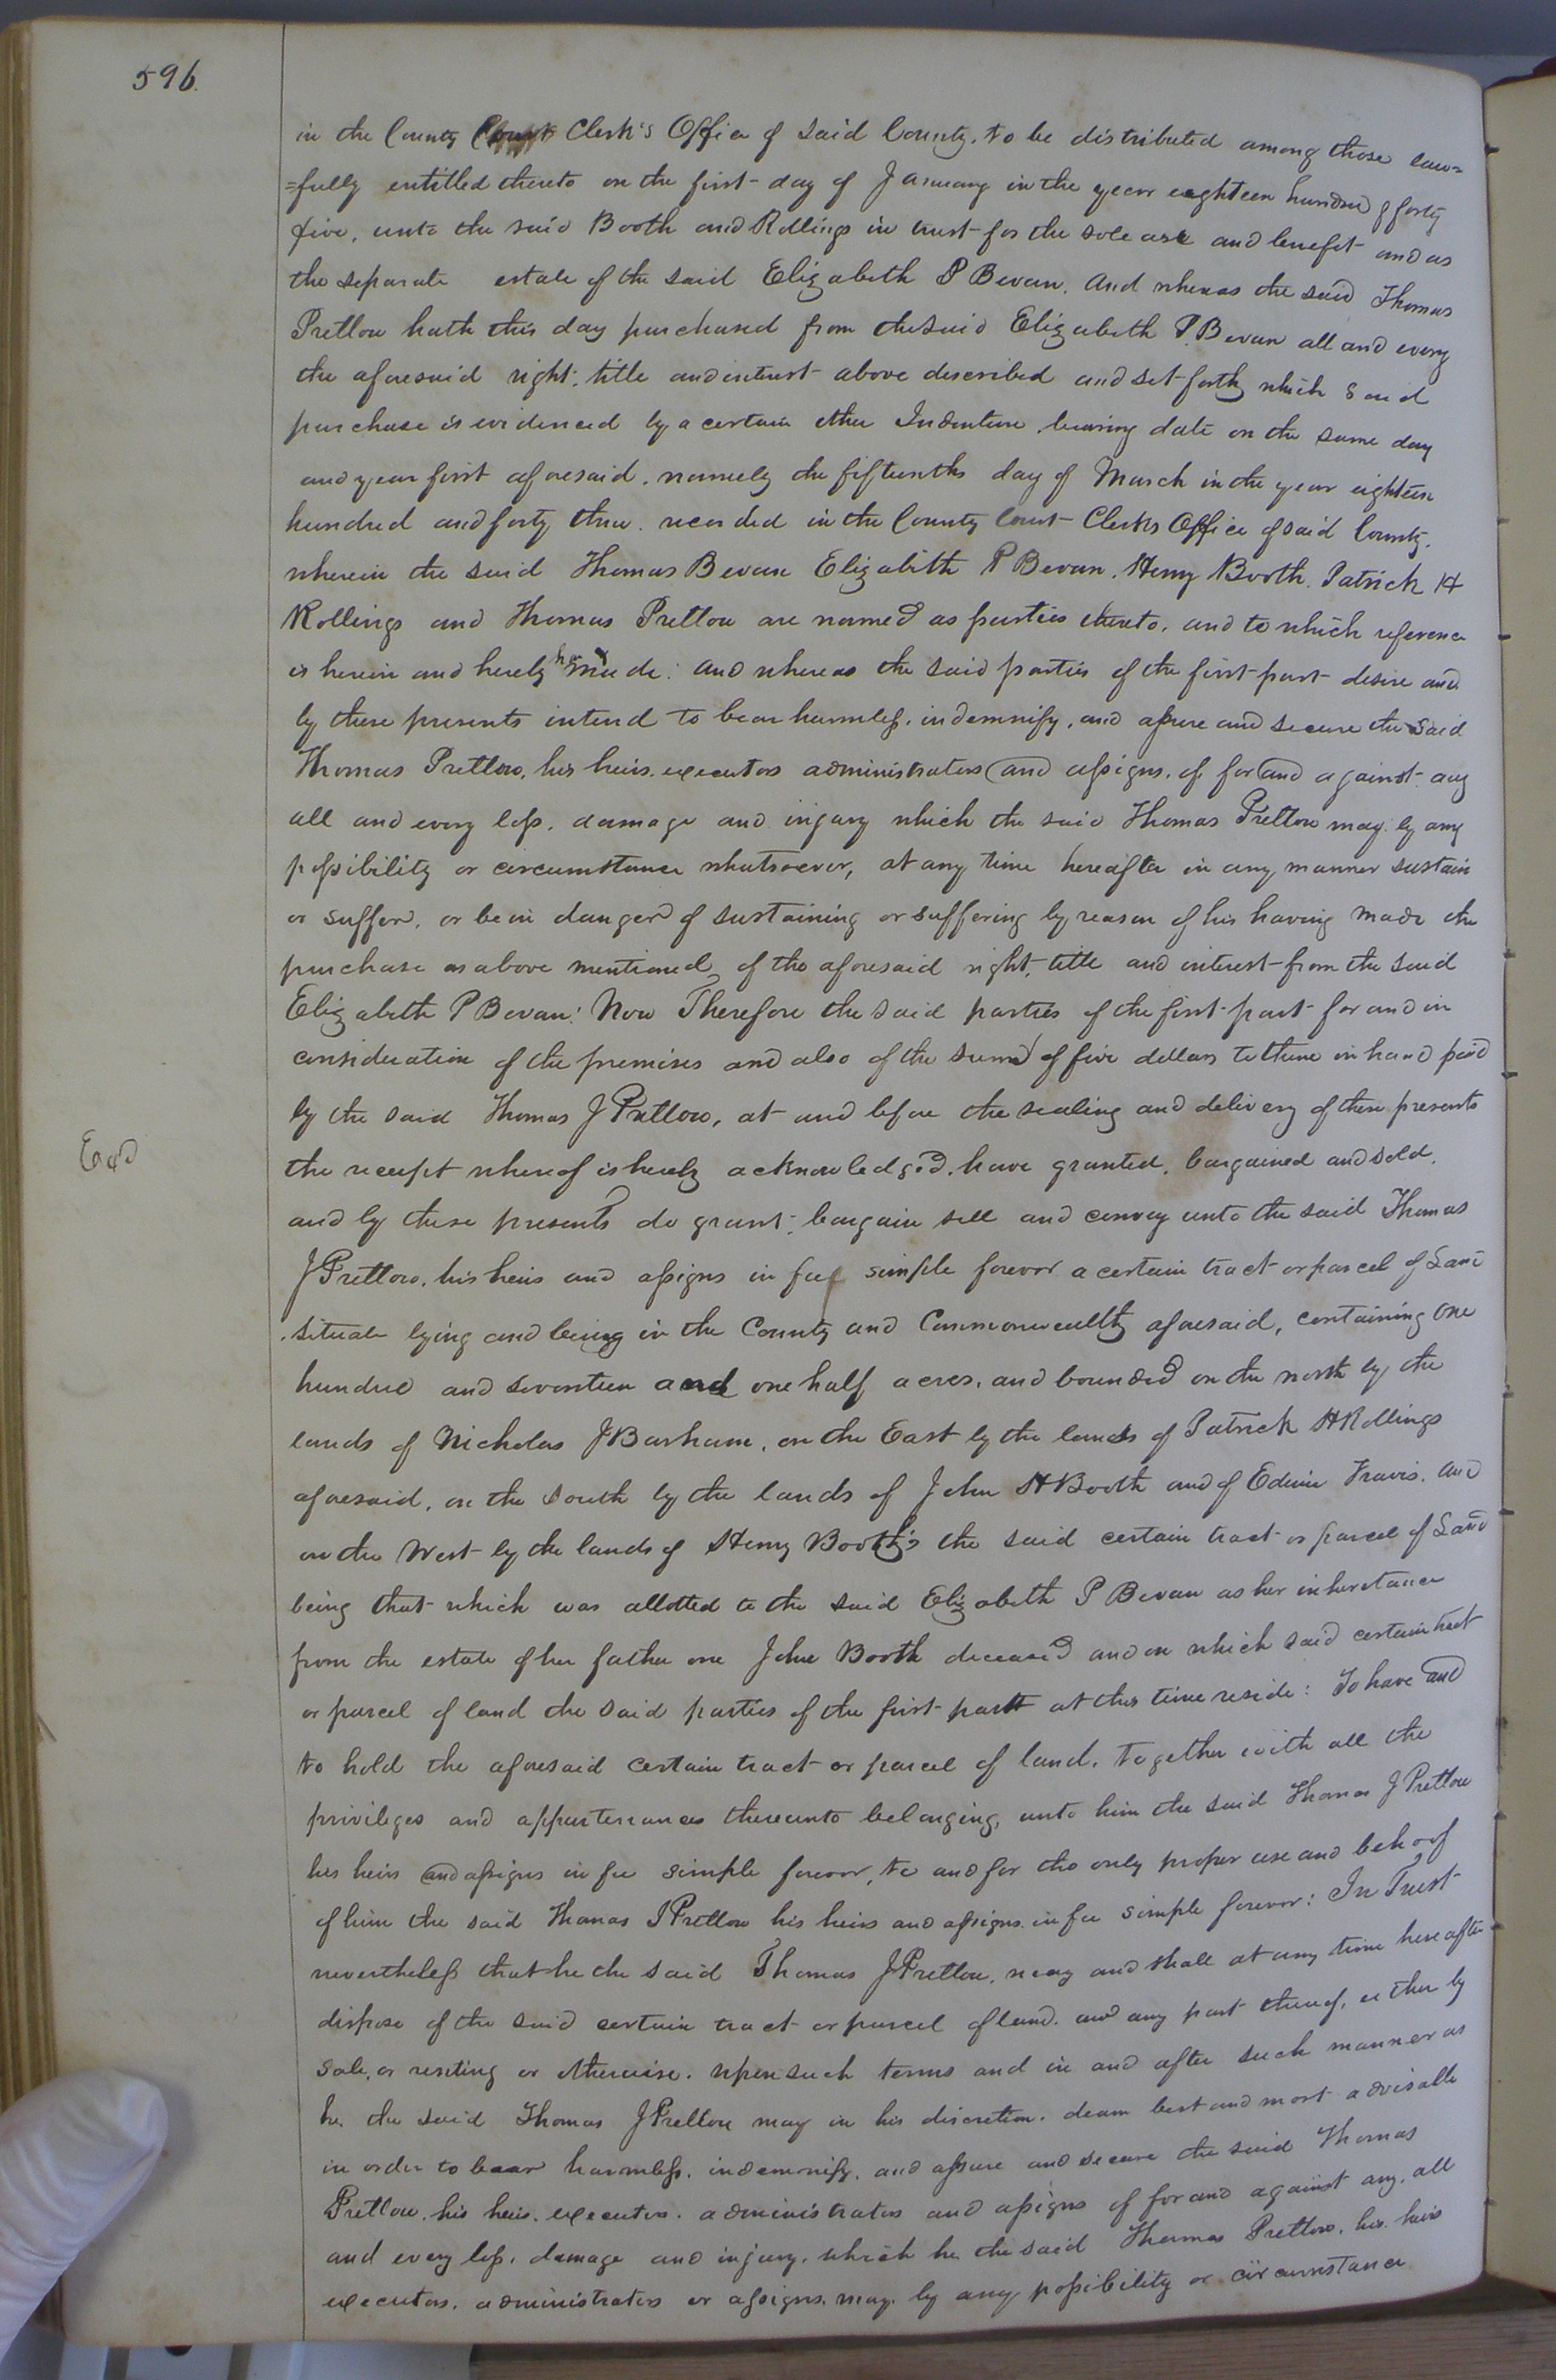 596.
in the County Court Clerk's Office of said County, to be distributed among those law=
=fully entitled thereto on the first day of January in the year eighteen hundred & forty
five, unto the said Booth and Rollings in trust for the sole use and benefit and as
the separate estate of the said Elizabeth P Bevan. And whereas the said Thomas
Pretlow hath this day purchased from the said Elizabeth P. Bevan all and every
the aforesaid right, title and interest above described and set forth, which said
purchase is evidenced by a certain other Indenture, bearing date on the same day
and year first aforesaid, namely the fifteenth day of March in the year eighteen
hundred and forty three, recorded in the County Court Clerks Office of said County,
wherein the said Thomas Bevan Elizabeth P Bevan, Henry Booth, Patrick H
Rollings and Thomas Pretlow are named as parties thereto, and to which reference
is herein and hereby made: And whereas the said parties of the first part desire and
by these presents intend to bear harmless, indemnify, and assure and secure the said
Thomas Pretlow, his heirs, executors administrators and assigns, of for and against any
all and every loss, damage and injury which the said Thomas Pretlow may by any
possibility or circumstance whatsoever, at any time hereafter in any manner sustain
or suffer, or be in danger of sustaining or suffering by reason of his having made the
purchase as above mentioned of the aforesaid right, title and interest from the said
Elizabeth P Bevan: Now Therefore the said parties of the first part for and in
consideration of the premises and also of the sum of five dollars to them in hand paid
by the said Thomas J Pretlow, at and before the sealing and delivery of these presents
Exd
the receipt whereof is hereby acknowledged, have granted, bargained and sold,
and by these presents do grant, bargain sell and convey unto the said Thomas
J Pretlow, his heirs and assigns in fee simple forever a certain tract or parcel of Land
situate lying and being in the County and Commonwealth aforesaid, containing one
hundred and seventeen and one half acres, and bounded on the north by the
lands of Nicholas J Barham, on the East by the lands of Patrick H Rollings
aforesaid, on the South by the lands of John H Booth and of Edwin Travis, and
on the West by the lands of Henry Booth; the said certain tract or parcel of Land
being that which was allotted to the said Elizabeth P Bevan as her inheretance
from the estate of her father one John Booth deceased and on which said certain tract
or parcel of land the said parties of the first part at this time reside: To have and
to hold the aforesaid certain tract or parcel of land, together with all the
privileges and appurtenances thereunto belonging, unto him the said Thomas J Pretlow
his heirs and assigns in fee simple forever, to and for the only proper use and behoof
of him the said Thomas J Pretlow his heirs and assigns in fee simple forever: In Trust
nevertheless that he the said Thomas J Pretlow, may and shall at any time hereafter
dispose of the said certain tract or parcel of land, and any part thereof, either by
sale, or renting or otherwise, upon such terms and in and after such manner as
he the said Thomas J Pretlow may in his discretion, deam best and most advisable
in order to bear harmless, indemnify, and assure and secure the said Thomas
Pretlow, his heirs, executors, administrators and assigns of for and against any, all
and every loss, damage and injury, which he the said Thomas Pretlow, his heirs
executors, administrators or assigns, may, by any possibility or circumstance